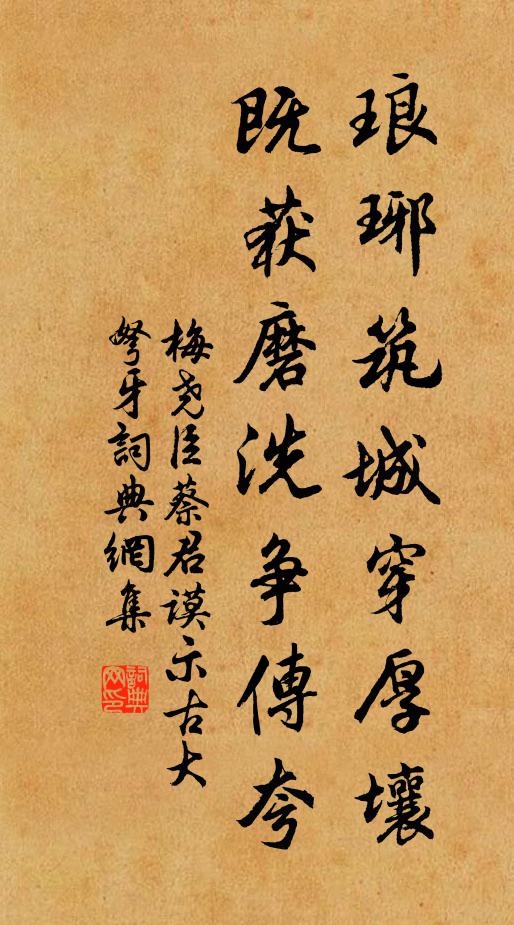 琅琊筑城穿厚壤
既获磨洗争傳夸
梅尧臣蔡君謨示古大
弩牙詞典網集
詞典网印